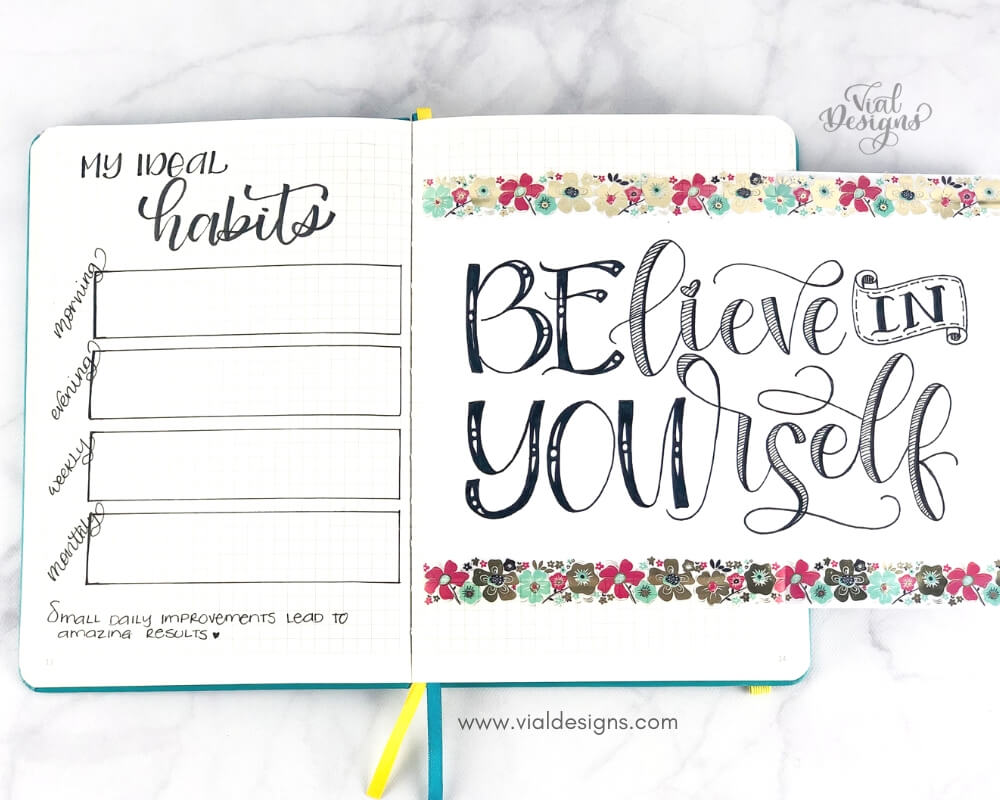 Vial
Designs
MY IDEAL
habits
morning
evening
weekly
monthly
Small daily improvements lead to
amazing results ♥
13
BElieve IN
YOUrself
14
www.vialdesigns.com